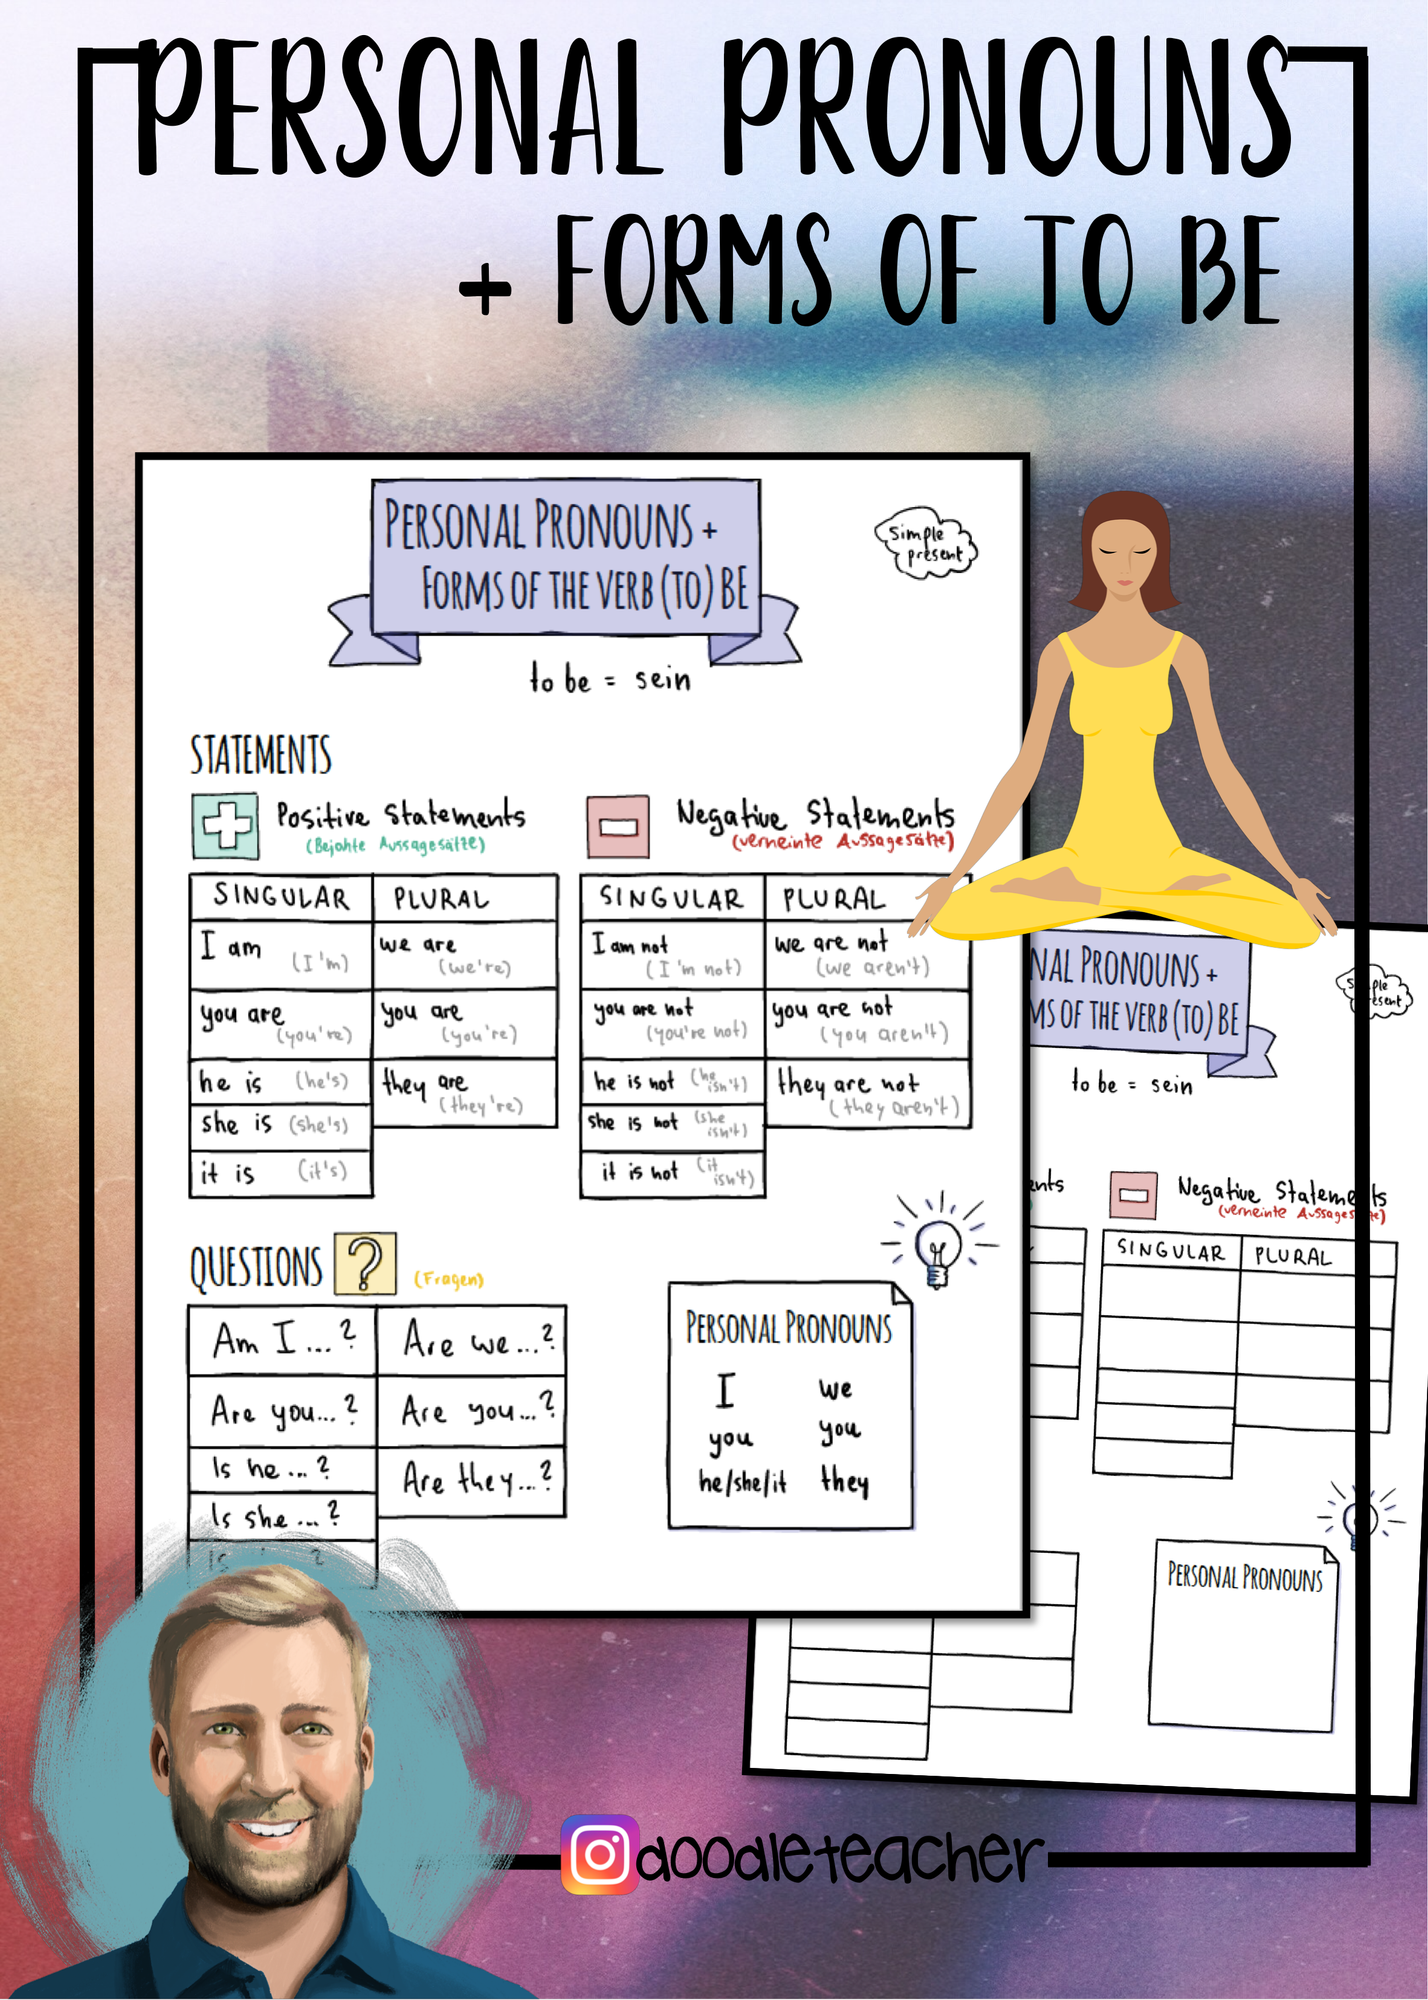 PERSONAL PRONOUNS
+ FORMS OF TO BE
PERSONAL PRONOUNS +
FORMS OF THE VERB (TO) BE
Simple
present
to be = sein
STATEMENTS
Positive Statements
(Bejahte Aussagesätze)
SINGULAR PLURAL
I am (I'm) we are (we're)
you are (you're) you are (you're)
he is (he's) they are (they're)
she is (she's)
it is (it's)
Negative Statements
(verneinte Aussagesätze)
SINGULAR PLURAL
I am not (I'm not) we are not (we aren't)
you are not (you're not) you are not (you aren't)
he is not (he isn't) they are not (they aren't)
she is not (she isn't)
it is not (it isn't)
QUESTIONS ? (Fragen)
Am I ...? Are we ...?
Are you...? Are you...?
Is he ...? Are they...?
Is she ...?
Is ?
PERSONAL PRONOUNS
I we
you you
he/she/it they
NAL PRONOUNS +
MS OF THE VERB (TO) BE
Simple
present
to be = sein
ents
Negative Statements
(verneinte Aussagesätze)
SINGULAR PLURAL
PERSONAL PRONOUNS
doodleteacher